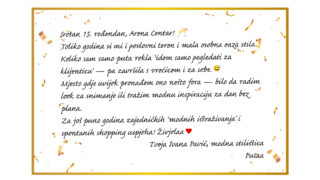 Sretan 15. rođendan, Arena Centar!
Toliko godina si mi i poslovni teren i mala osobna oaza stila.
Koliko sam samo puta rekla 'idem samo pogledati za
klijenticu' — pa završila s vrećicom i za sebe. 😄
Mjesto gdje uvijek pronađem ono nešto fora — bilo da radim
look za snimanje ili tražim modnu inspiraciju za dan bez
plana.
Za još puno godina zajedničkih 'modnih istraživanja' i
spontanih shopping uspjeha! Živjela ❤️
Tvoja Ivana Pavić, modna stilistica